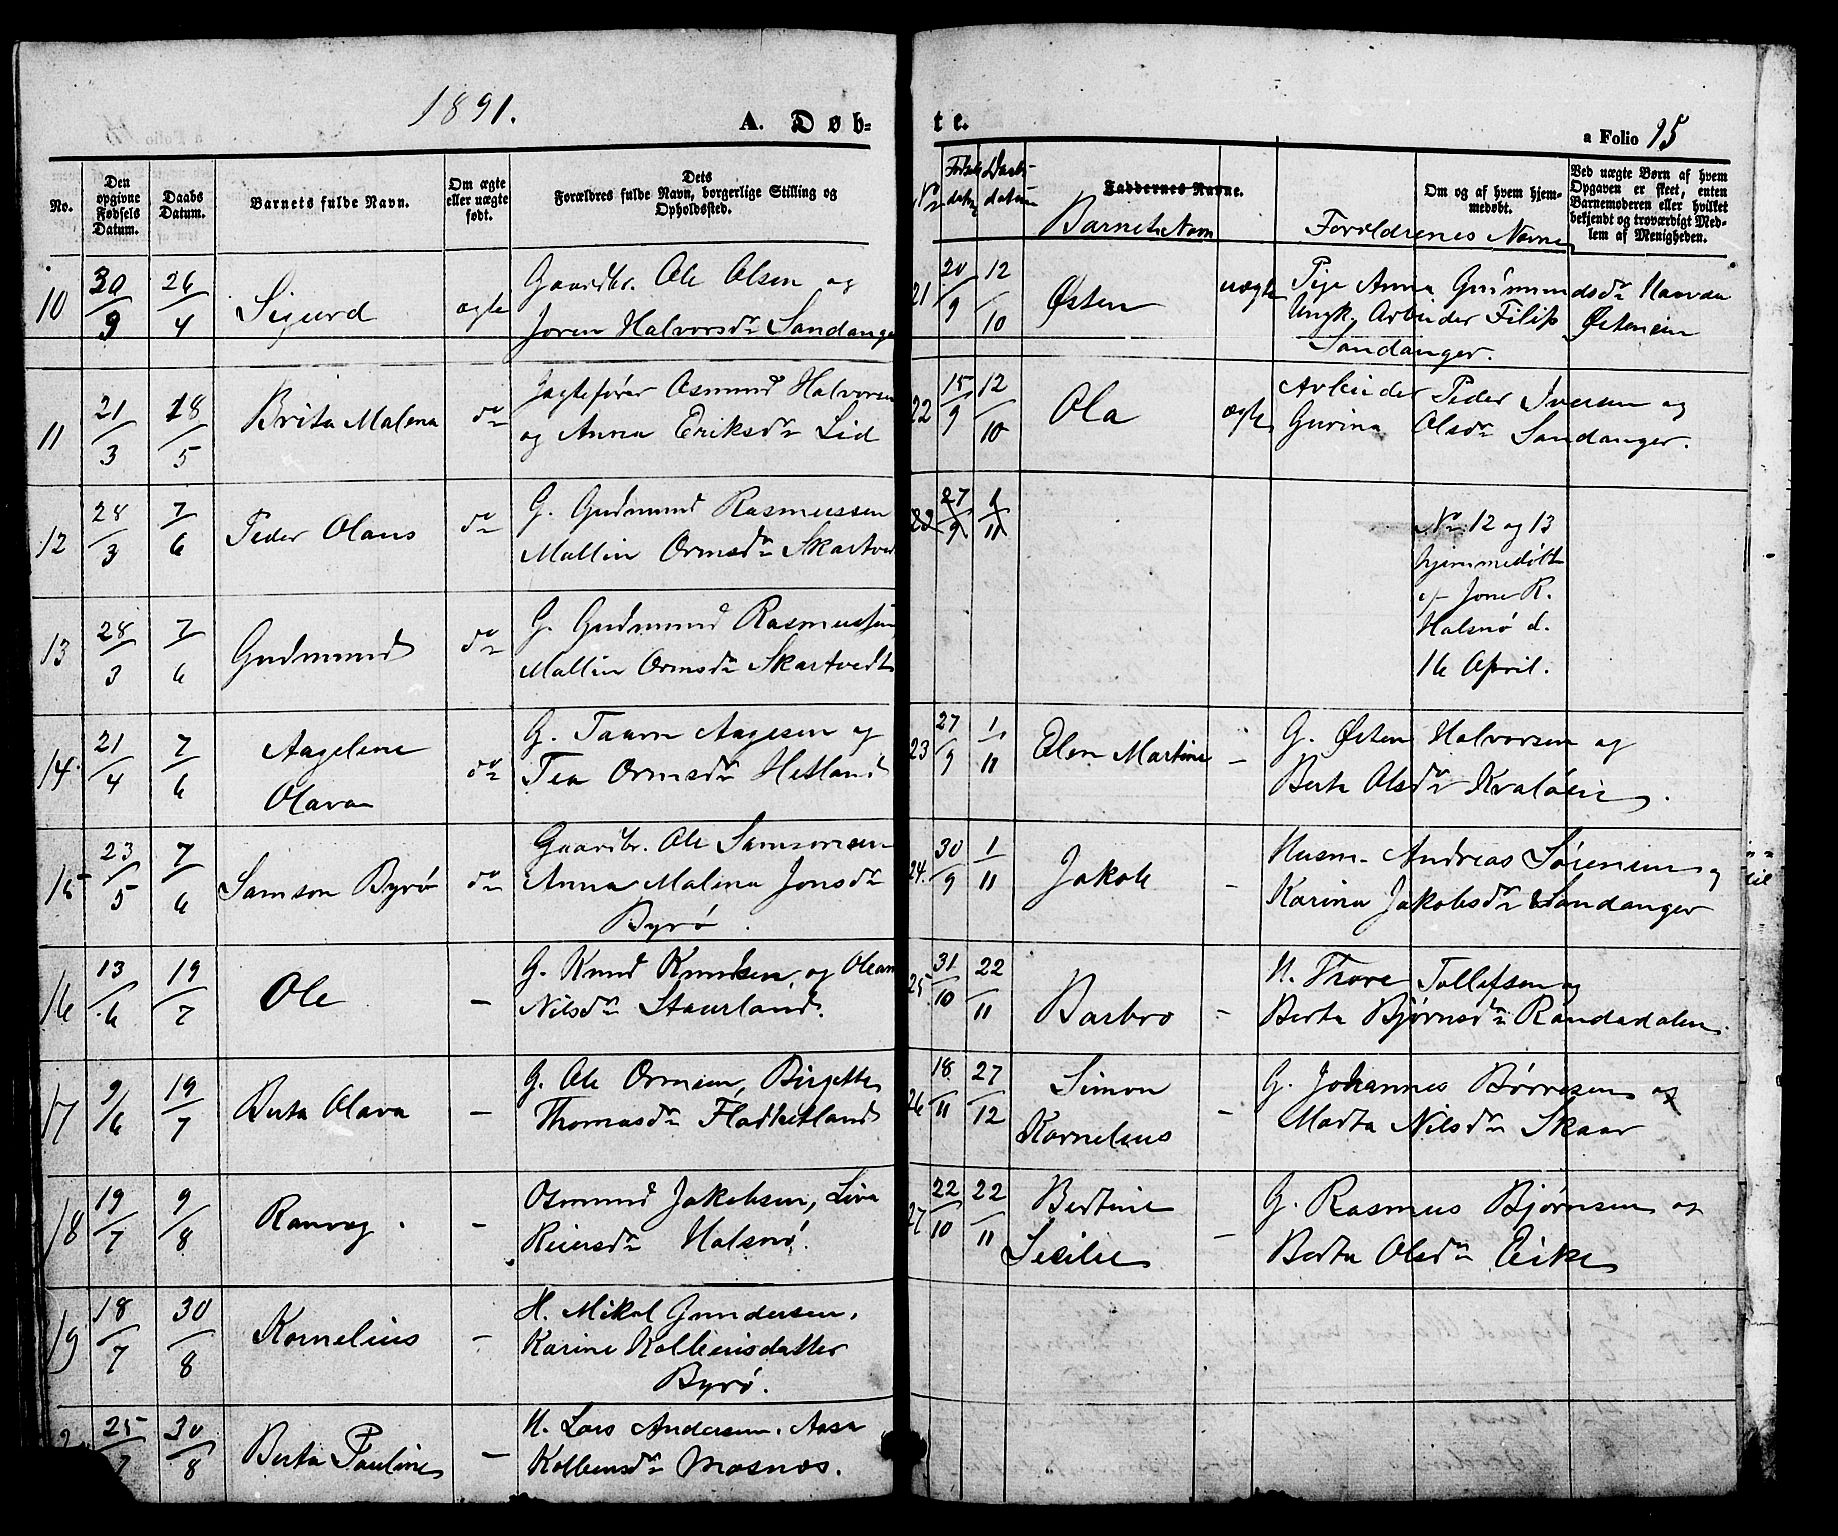 1891.
A. Døb-
No.
Den opgivne Fødsels Datum.
Daabs Datum.
Barnets fulde Navn.
Om ægte eller uægte født.
Dets Forældres fulde Navn, borgerlige Stilling og Opholdssted.
10 30/9 26/4 Sigurd ægte Gaardbr. Ole Olsen og
Joren Halvorsdr Sandanger
11 21/3 18/5 Brita Malena do Jægtefører Osmund Halvorsen
og Anna Eriksdr Lid
12 28/3 7/6 Peder Olaus do G. Gudmund Rasmussen
Mallin Ormsdr Skartved
13 28/3 7/6 Gudmund do G. Gudmund Rasmussen
Mallin Ormsdr Skartvedt
14. 21/4 7/6 Aagelene do G. Taarn Aagesen og
Olava Tea Ormsdr Hetland
15 23/5 7/6 Samson Byrø do Gaardbr. Ole Samsonsen
Anna Malina Jonsdr
Byrø.
16 13/6 19/7 Ole – G. Knud Knudsen og Oleana
Nilsdr Staurland.
17 9/6 19/7 Berta Olava – G. Ole Ormsen, Birgitte
Thomasdr Fladhetland
18 19/7 9/8 Ranveg. – Osmund Jakobsen, Liva
Reiersdr Halsnø.
19 18/7 30/8 Kornelius – H. Mikal Gundersen,
Karine Kolbeinsdatter
Byrø.
25/7 30/8 Berta Pauline – H. Lars Andersen. Aasa
Kolbensdr Mosnæs.
te.
a Folio 95
No
Fødsels datum
Daabs datum
Faddernes Navne.
Barnets Navn
Om og af hvem hjemmedøbt.
Forældrenes Navne
Ved uægte Børn af hvem Opgaven er skeet, enten Barnemoderen eller hvilket bekjendt og troværdigt Medlem af Menigheden.
21 20/9 12/10 Østen uægte Pige Anna Gudmundsdr
Ungk. Arbeider Filip Østensen
Sandanger.
22 15/9 12/10 Ola ægte Arbeider Peder Iversen og
Gurina Olsdr Sandanger.
23 27/9 1/11
No 12 og 13
hjemmedøbt
af Jone R.
Halsnø d.
16 April.
23 27/9 1/11 Elen Martine – G. Østen Halvorsen og
Berta Olsdr Kraløen.
24. 30/9 1/11 Jakob – Husm. Andreas Sørensen og
Karina Jakobsdr Sandanger
25 31/10 22/11 Barbro – H. Thore Tollefsen og
Berta Bjørnsdr Randadalen.
26 18/11 27/12 Simon – G. Johannes Børresen og
Kornelius Marta Nilsdr Skaar
27 22/10 22/11 Bertine – G. Rasmus Bjørnsen og
Secilie Berta Olsdr Eike